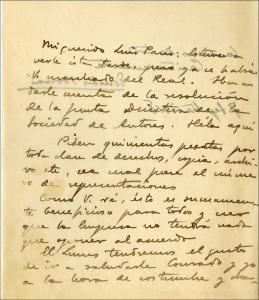 Mi querido Luis París: Estuve a
verle esta tarde, pero ya se había
V. marchado del Real. Hera a
darle cuenta de la resolución
de la Junta Directiva de la
Sociedad de Autores. Héla aquí
Piden quinientas pesetas por
toda clase de derechos, copia, archi
vo etc, sea cual fuera el núme
ro de representaciones
Como V. vé, ésto es sumamente
beneficioso para todos y creo
que la Empresa no tendrá nada
que oponer al acuerdo
El Lunes tendremos el gusto
de ir a saludarle Conrado y yo
a la hora de costumbre y